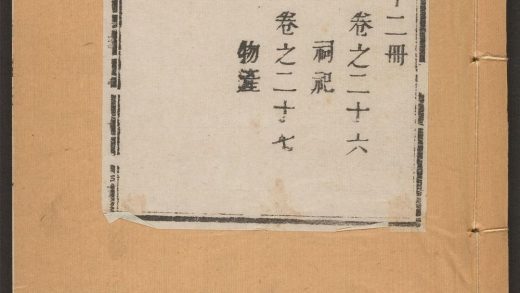 二冊
卷之二十六
祠祀
卷之二十七
物產